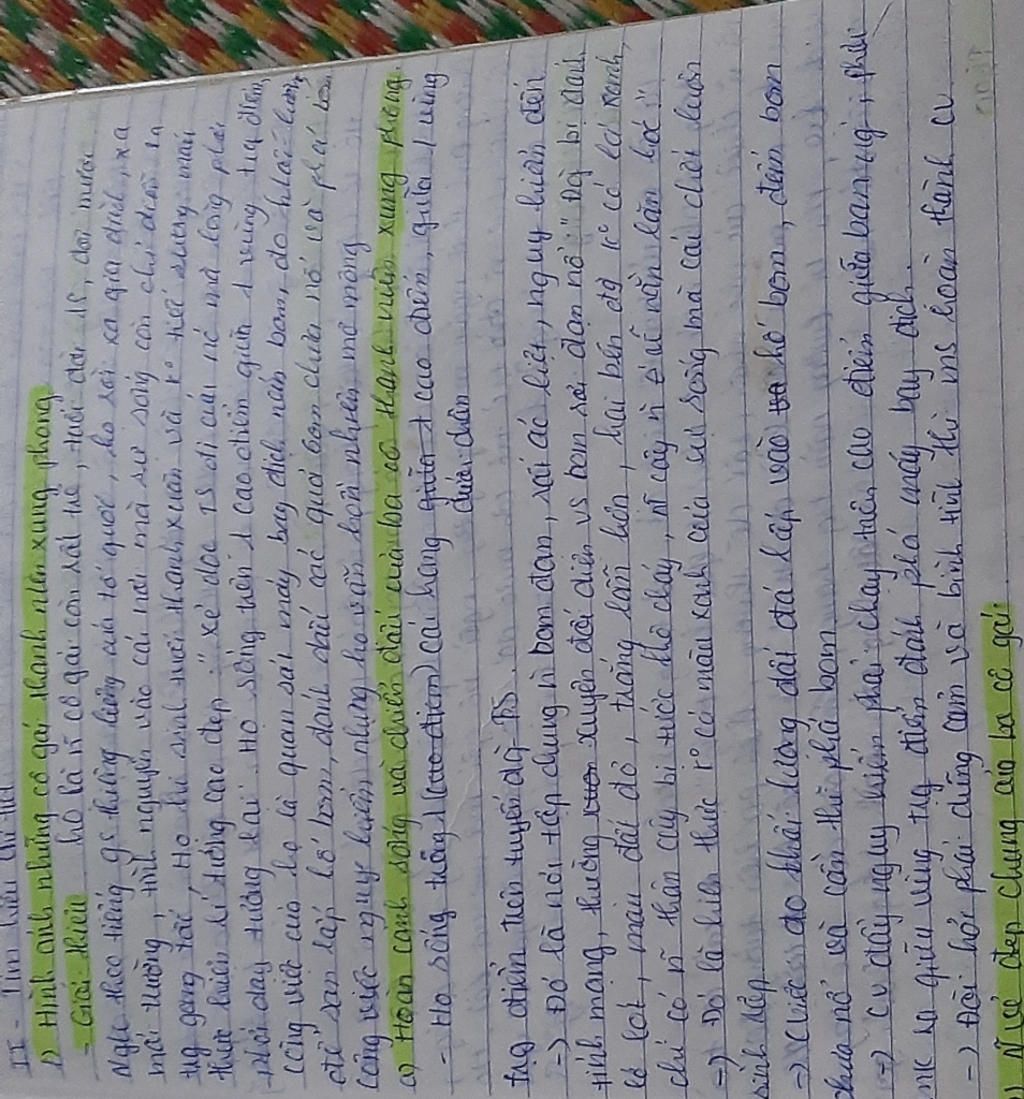 II - Tìm hiểu chi tiết
1) Hình ảnh những cô gái thanh niên xung phong
- Giới thiệu họ là n~ cô gái còn rất trẻ, tuổi đời 18, đôi mươi
Nghe theo tiếng gọi thiêng liêng của tổ quốc, họ rời xa gia đình, xa
mái trường, tình nguyện vào cái nơi mà sự sống còn chỉ diễn ra
tng gang tấc, Họ hi sinh tuổi thanh xuân và ko tiếc xương máu
thực hiện lí tưởng cao đẹp: "xẻ dọc TS đi cứu nc mà lòng phơi
phới dậy tương lai". Họ sống trên 1 cao điểm giữa 1 vùng trg điểm,
công việc của họ là quan sát máy bay địch ném bom, đo khối lượng
để san lấp hố bom, đánh dấu các quả bom chưa nổ và phá bom
công việc nguy hiểm nhưng họ vẫn hồn nhiên mơ mộng
a) Hoàn cảnh sống và chiến đấu của ba cô thanh niên xung phong.
- Họ sống trong 1 (cao điểm) cái hang giữa 1 cao điểm, giữa 1 vùng
dưới chân
trg điểm trên tuyến đg TS.
-> Đó là nơi tập chung n` bom đạn, rất ác liệt, nguy hiểm đến
tính mạng, thường xuyên đối diện vs bom rơi, đạn nổ: "Đg bị đánh
lở loét, màu đất đỏ, trắng lẫn lộn, hai bên đg ko có lá xanh,
chỉ có n~ thân cây bị tước khô cháy, n~ cây n` rễ nằm lăn lóc"
=> Đó là hiện thực ko có màu xanh của sự sống mà cái chết luôn
rình rập
=> Cviệc: đo khối lượng đất đá lấp vào hố bom, đếm bom
chưa nổ và cần thì phá bom
=> Cv đầy nguy hiểm phải chạy trên cao điểm giữa ban ng`, phải
ra giữa vùng trg điểm đánh phá máy bay địch.
-> Đòi hỏi phải dũng cảm và bình tĩnh thì ms hoàn thành cv
Nét đẹp chung của ba cô gái